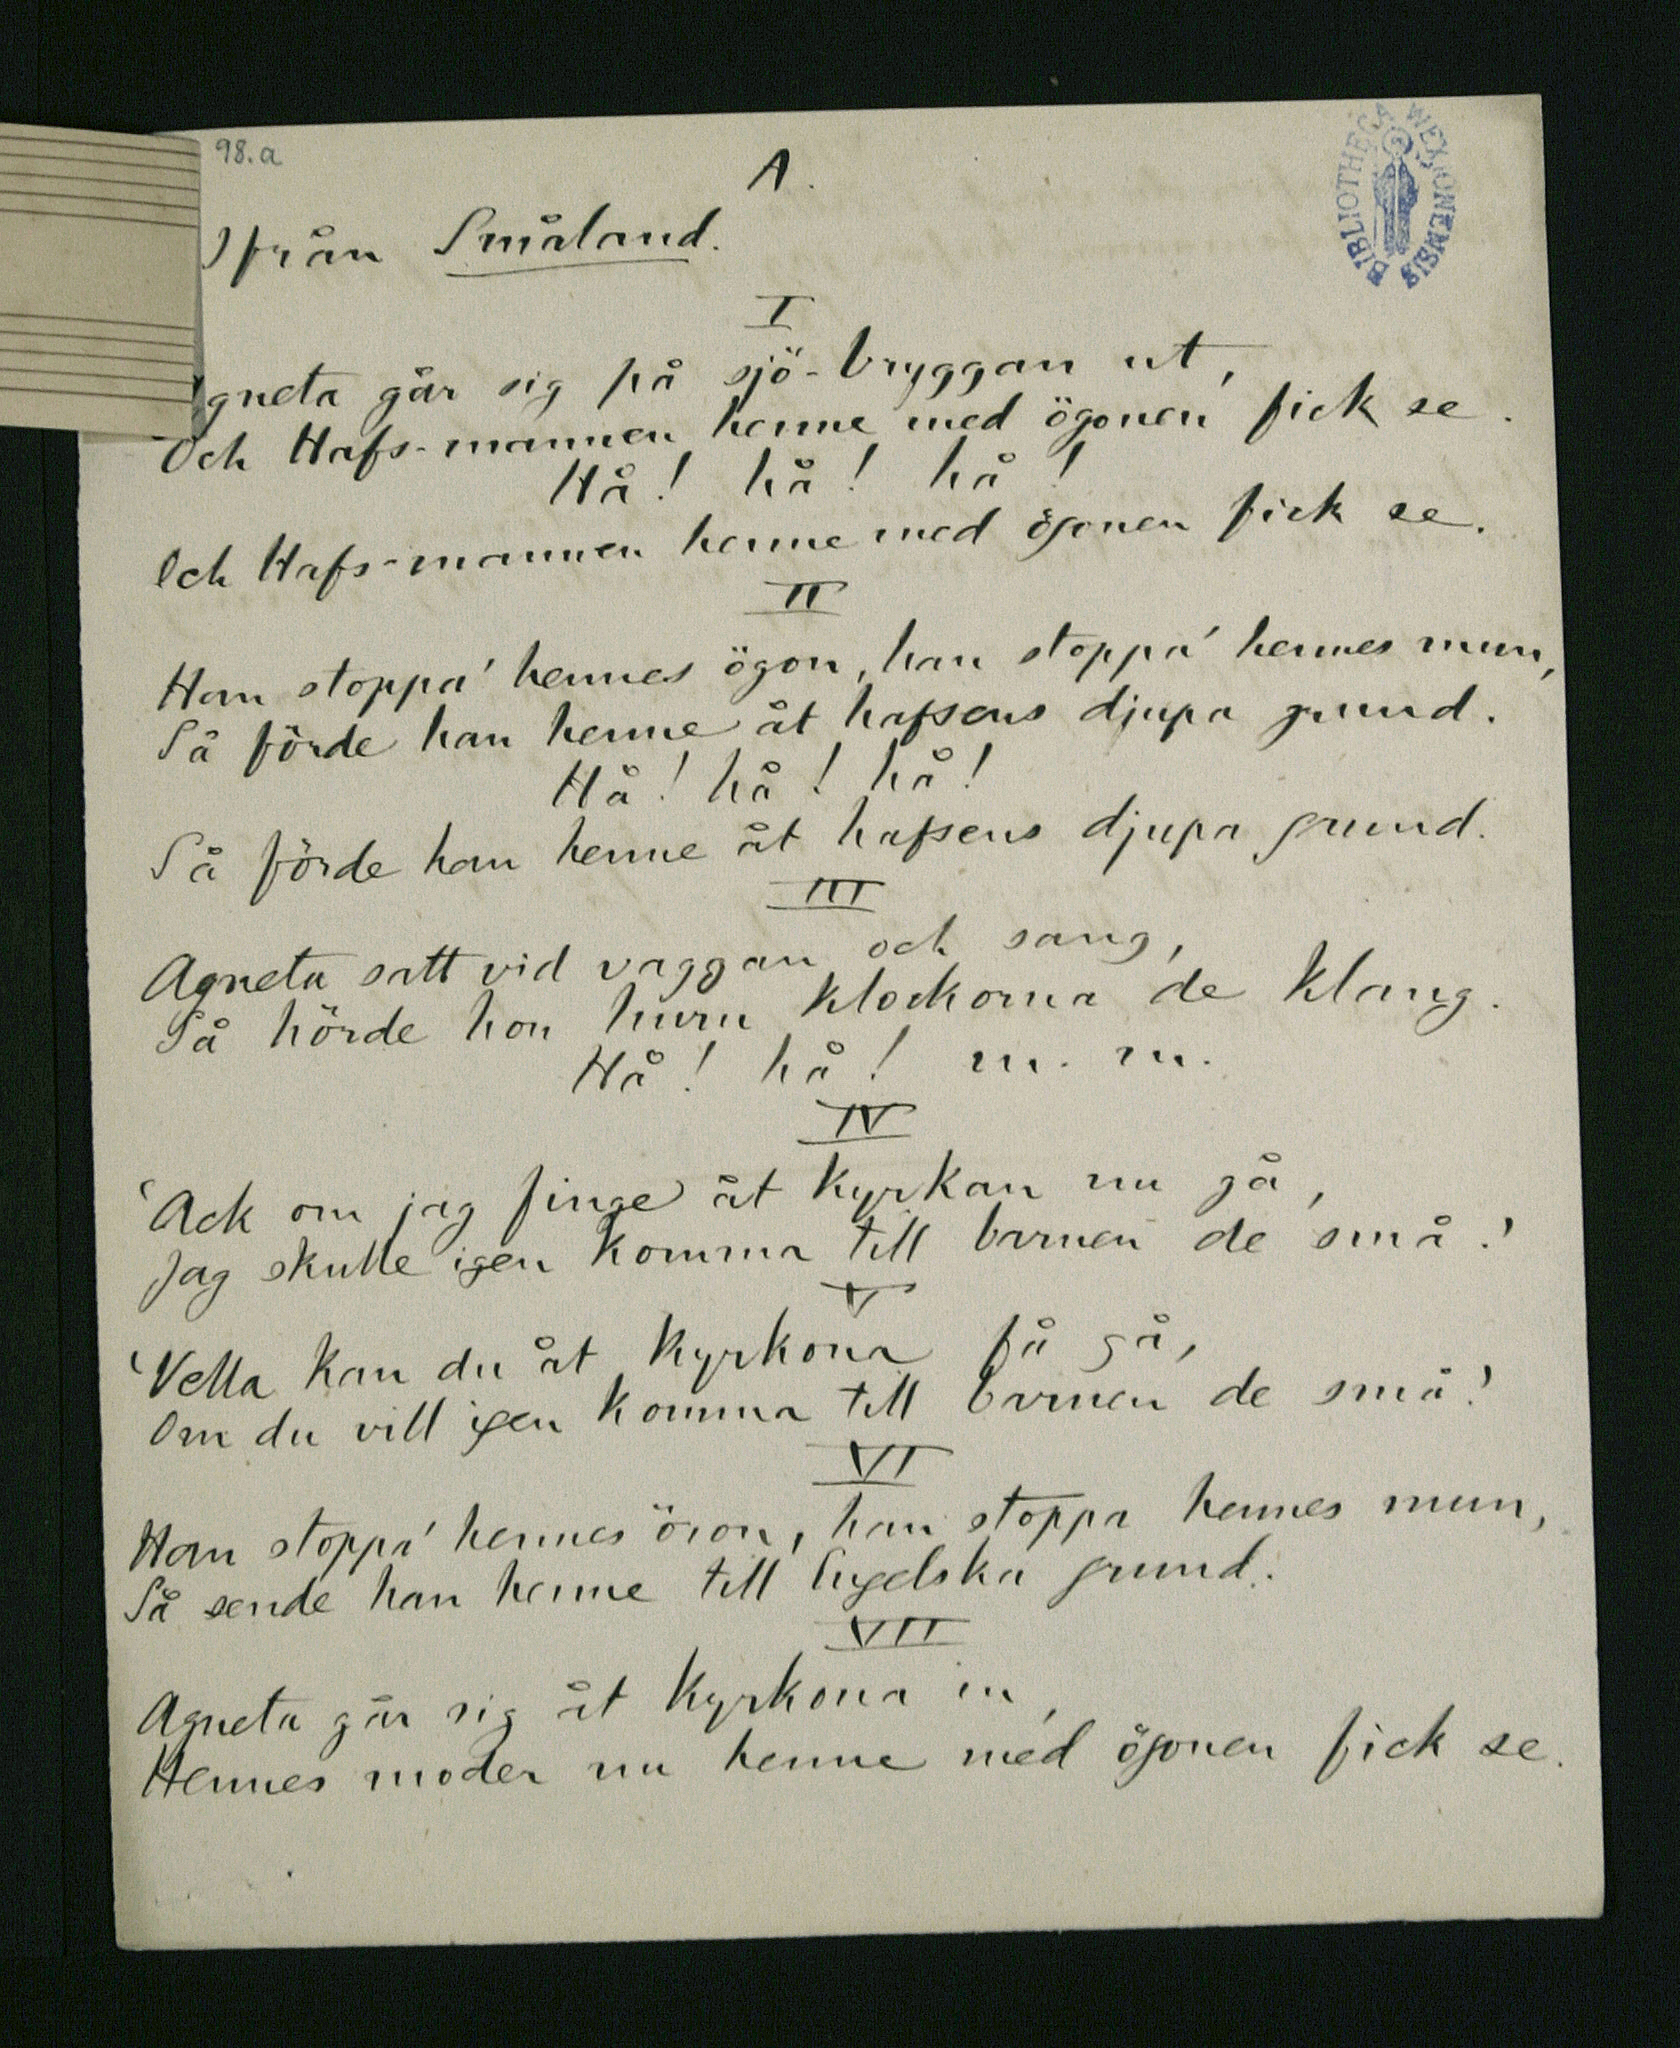 98.a
A.
Ifrån Småland.
BIBLIOTHECA WEXIONENSIS
I
Agneta går sig på sjö-bryggan ut,
Och Hafs-mannen henne med ögonen fick se.
Hå! hå! hå!
Och Hafs-mannen henne med ögonen fick se.
II
Han stoppa' hennes ögon, han stoppa' hennes mun,
Så förde han henne åt hafsens djupa grund.
Hå! hå! hå!
Så förde han henne åt hafsens djupa grund.
III
Agneta satt vid vaggan och sang,
Så hörde hon huru klockorna de klang.
Hå! hå! m. m.
IV
'Ack om jag finge åt kyrkan nu gå,
Jag skulle igen komma till barnen de små!'
V
'Vella kan du åt kyrkona få gå,
Om du vill igen komma till barnen de små!'
VI
Han stoppa' hennes öron, han stoppa hennes mun,
Så sende han henne till Engelska grund.
VII
Agneta går sig åt kyrkona in,
Hennes moder nu henne med ögonen fick se.